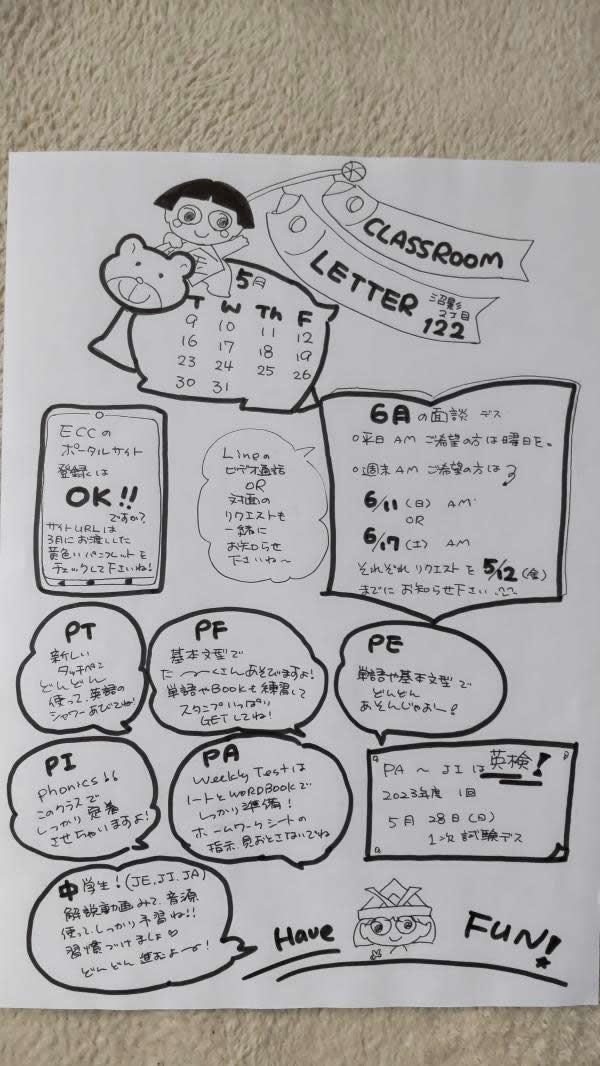 CLASSROOM
LETTER
沼影
2丁目
122
5月
T W Th F
9 10 11 12
16 17 18 19
23 24 25 26
30 31
ECCの
ポータルサイト
登録は
OK!!
ですか?
サイトURLは
3月にお渡しした
黄色いパンフレットを
チェックして下さいね!
Lineの
ビデオ通話
OR
対面の
リクエストも
一緒に
お知らせ
下さいね〜
6月の面談デス
○平日AMご希望の方は曜日を。
○週末AMご希望の方は
6/11(日) AM
OR
6/17(土) AM
それぞれリクエストを5/12(金)
までにお知らせ下さい
PT
新しい
タッチペン
どんどん
使って、英語の
シャワーあびてね!
PF
基本文型で
た〜くさんあそびますよ!
単語やBookも練習して
スタンプいっぱい
GETしてね!
PE
単語や基本文型で
どんどん
あそんじゃおー!
PI
Phonics!!
このクラスで
しっかり定着
させちゃいますよ!
PA
Weekly Testは
ノートとWORDBOOKで
しっかり準備!
ホームワークシートの
指示、見おとさないでね
PA〜JIは英検!
2023年度 1回
5月28日(日)
1次試験デス
中学生!(JE,JI,JA)
解説動画みて、音源
使って、しっかり予習ね!!
習慣づけましょ♡
どんどん進むよ〜!
Have FUN!